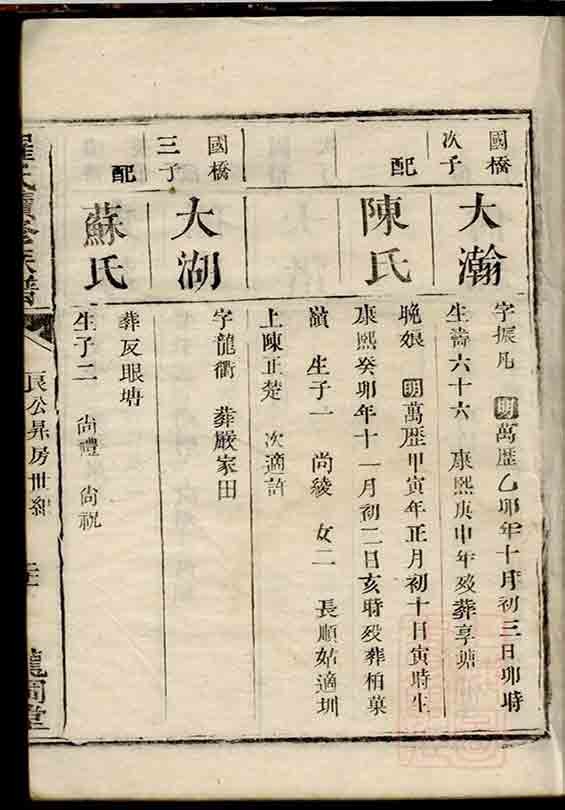 國橋
次子
大瀚
字振凡 明萬歷乙卯年十月初三日卯時
生壽六十六 康熙庚申年歿葬享塘
配
陳氏
晚娘 明萬歷甲寅年正月初十日寅時生
康熙癸卯年十一月初二日亥時歿葬柏菓
嶺 生子一 尚綾 女二 長順姑適圳
上陳正楚 次適許
國橋
三子
大湖
字龍衢 葬嚴家田
配
蘇氏
葬反眼塘
生子二 尚禮 尚祝
羅氏續修族譜
良公昇房世紀